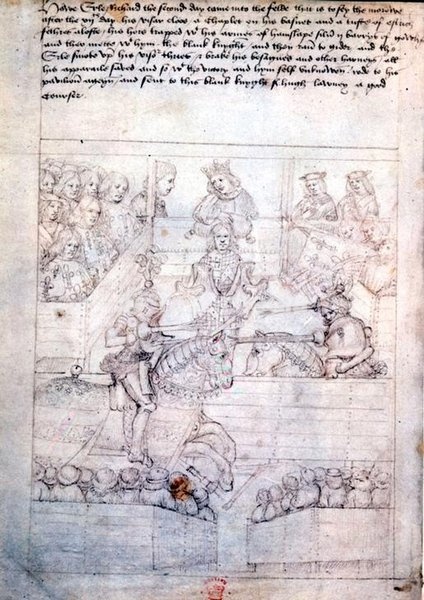 Howe Erle Richard the second day came into the felde that is to sey the morowe
after the day his visar cloos a Chaplet on his basnet and a tuffe of estrich
fethres alofte his hors trapped w his armes of hamslape silv ij barres of gowles
and there mette w hym the blank knyght and they ran to gider and the
Erle smote up his visor thries & brake his besagues and other harneys all
his apparaile saved and so w the victory and hym self unknowen rode to his
pavilion ageyn and sent to this blank knyght hugh lawney a good
courser